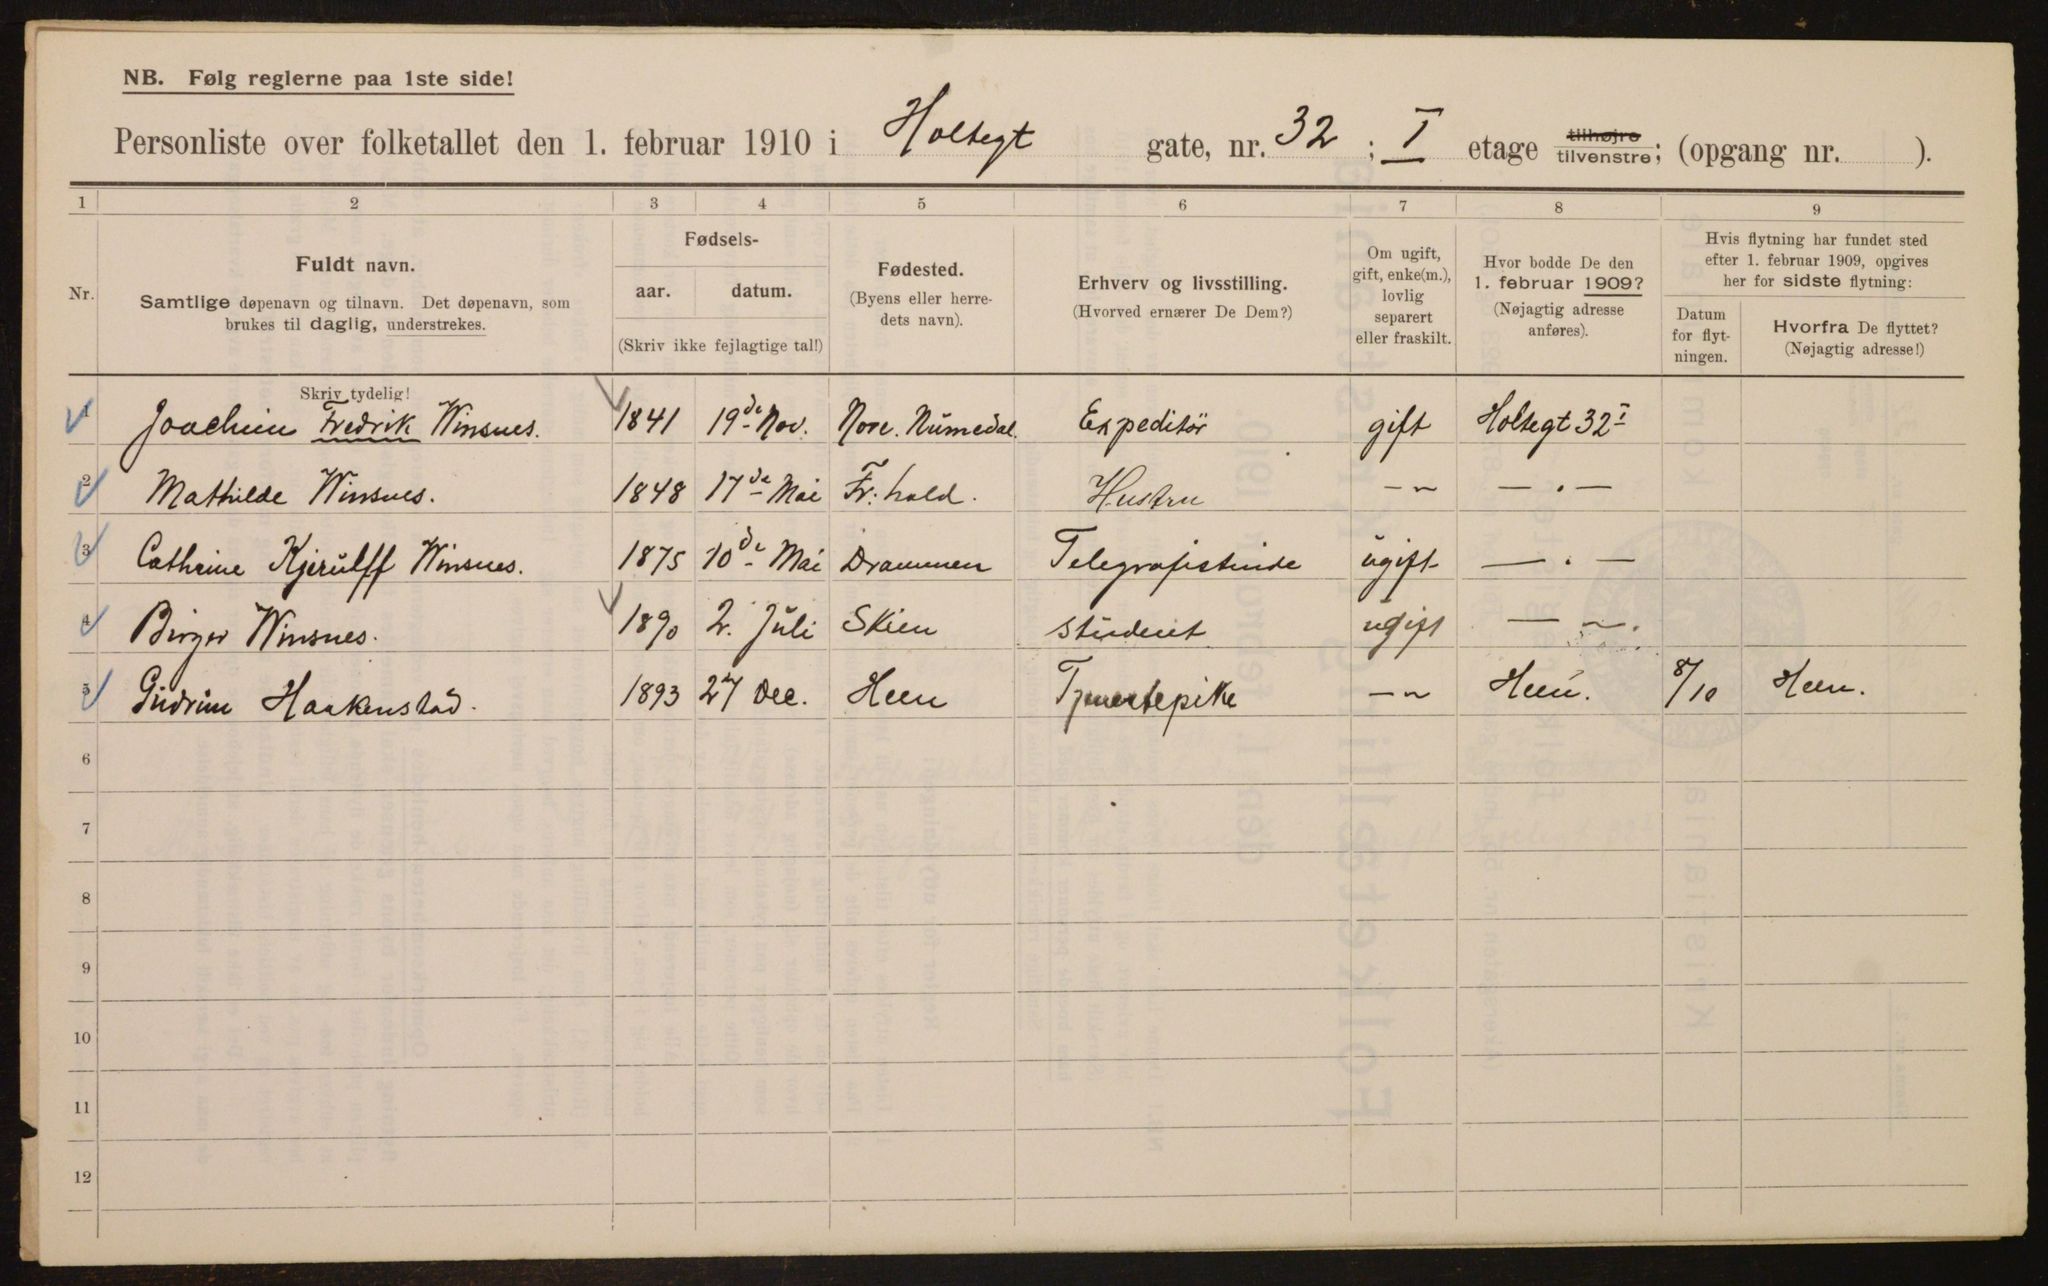 NB. Følg reglerne paa 1ste side!
Personliste over folketallet den 1. februar 1910 i Holtegt gate, nr. 32 ; I etage tilhøjre tilvenstre; (opgang nr. ).
1 2 3 4 5 6 7 8 9
Nr.
Fuldt navn.
Samtlige døpenavn og tilnavn. Det døpenavn, som
brukes til daglig, understrekes.
Fødsels-
aar. datum.
(Skriv ikke fejlagtige tal!)
Fødested.
(Byens eller herre-
dets navn).
Erhverv og livsstilling.
(Hvorved ernærer De Dem?)
Om ugift,
gift, enke(m.),
lovlig
separert
eller fraskilt.
Hvor bodde De den
1. februar 1909?
(Nøjagtig adresse
anføres).
Hvis flytning har fundet sted
efter 1. februar 1909, opgives
her for sidste flytning:
Datum
for flyt-
ningen.
Hvorfra De flyttet?
(Nøjagtig adresse!)
Skriv tydelig!
1 Joachim Fredrik Winsnes. 1841 19de Nov. Nore. Numedal. Expeditør gift Holtegt 32 I
2 Mathilde Winsnes. 1848 17de Mai Fr: hald. Hustru — „ — . —
3 Cathrine Kjerulff Winsnes. 1875 10de Mai Drammen Telegrafistinde ugift — . —
4 Birger Winsnes. 1890 2. Juli Skien student ugift — „ .
5 Gudrun Haakenstad. 1893 27 Dec. Heen Tjenestepike — „ Heen. 8/10 Heen.
6
7
8
9
10
11
12